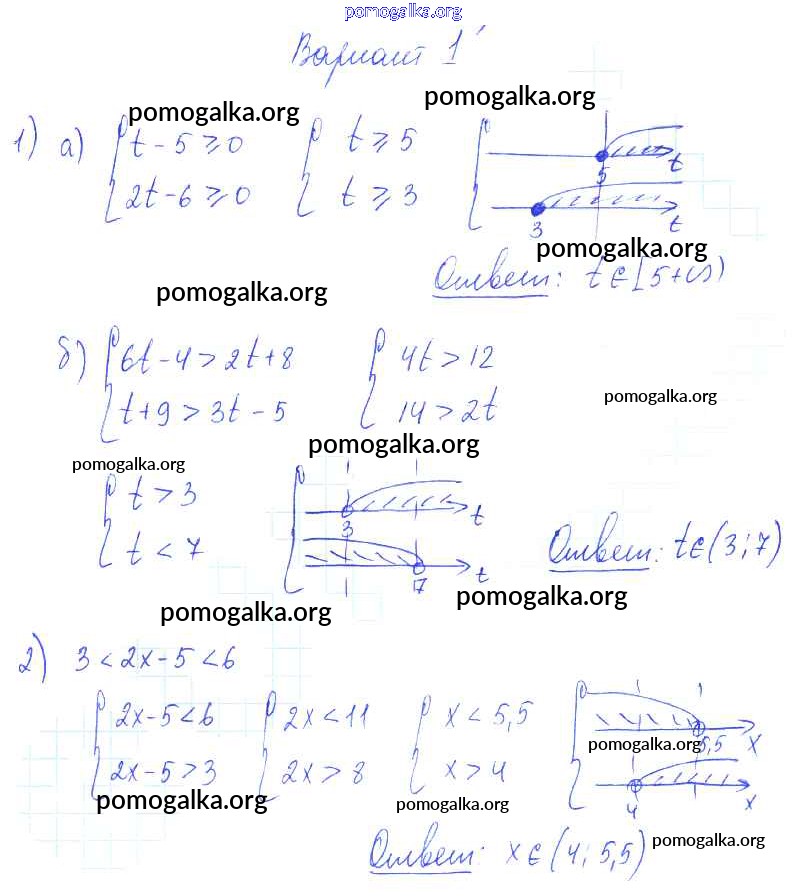 pomogalka.org
Вариант 1
pomogalka.org pomogalka.org
1) а) { t - 5 ≥ 0 { t ≥ 5 { 5 t
2t - 6 ≥ 0 t ≥ 3 3 t
pomogalka.org
pomogalka.org
Ответ: t ∈ [5 +∞)
б) { 6t - 4 > 2t + 8 { 4t > 12
t + 9 > 3t - 5 14 > 2t
pomogalka.org
pomogalka.org
pomogalka.org
{ t > 3 { 3 t
t < 7 7 t
Ответ: t ∈ (3; 7)
pomogalka.org pomogalka.org
2) 3 < 2x - 5 < 6
{ 2x - 5 < 6 { 2x < 11 { x < 5,5 { 5,5 x
pomogalka.org
2x - 5 > 3 2x > 8 x > 4 4 x
pomogalka.org pomogalka.org
Ответ: x ∈ (4; 5,5)
pomogalka.org